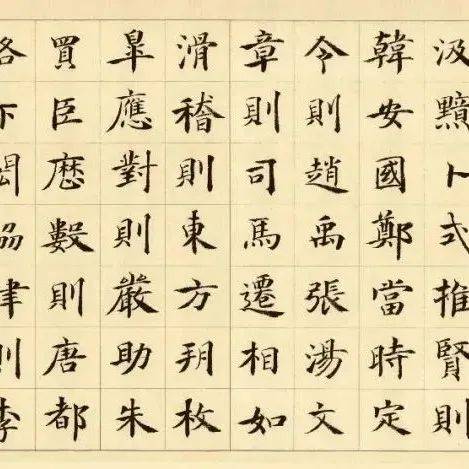 汲黯卜式推賢則
韓安國鄭當時定
令則趙禹張湯文
章則司馬遷相如
滑稽則東方朔枚
皐應對則嚴助朱
買臣曆數則唐都
洛下閎協律則李